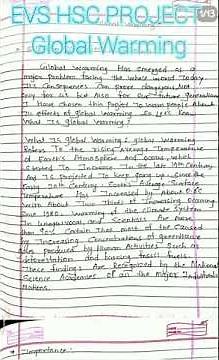 EVS HSC PROJECT
1/13
Global Warming
Global warming Has emerged as a
major Problem facing the whole world Today
Its Consequences Can prove Not
Only for us but Also for Our Future Generation
I Have chosen this Project To warn People About
The effects of global warming. So let's Know
What is global warming?
What Is global Warming? global Warming
Refers To the rising Average Temperature
of Earth's Atmosphere And Oceans, which
started To Increase In the late 19th Century
And Is projected To keep going up. Since the
Early 20th Century, Earth's Average Surface
Temperature Has Increased by About 0.8°C
with About Two Thirds of Increasing Occurring
Since 1980. Warming of the climate System
Is Unequivocal, and Scientists Are more
than 90% Certain That most of the Caused
by Increasing Concentrations of greenhouse
Produced by Human Activities Such as
deforestation And burning fossil fuels.
These findings Are Recognized by the National
Science Academies of all the Major Industrialized
Nations.
Importance: